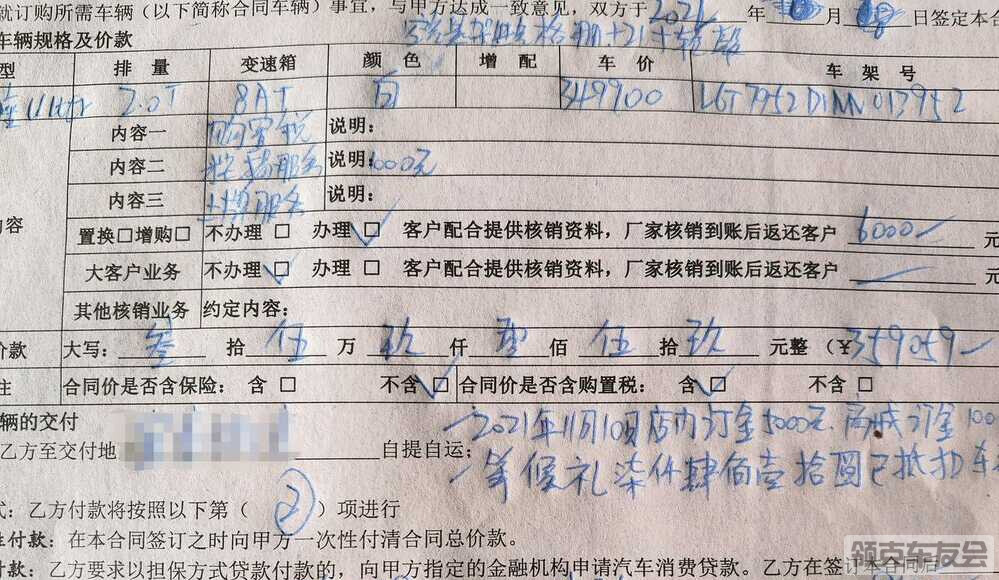 就订购所需车辆（以下简称合同车辆）事宜，与甲方达成一致意见，双方于2021年 月 日签定本合
车辆规格及价款
型 排 量 变速箱 颜 色 增 配 车 价 车 架 号
2.0T 8AT 白 349900
内容一 购置税 说明：
内容二 服务 说明：1000元
内容三 上牌服务 说明：
容 置换□增购□ 不办理 □ 办理 □ 客户配合提供核销资料，厂家核销到账后返还客户 6000 元
大客户业务 不办理 □ 办理 □ 客户配合提供核销资料，厂家核销到账后返还客户 元
其他核销业务 约定内容：
价款 大写：叁 拾 伍 万 玖 仟 零 佰 伍 拾 玖 元整（¥359059
注 合同价是否含保险： 含 □ 不含 □ 合同价是否含购置税： 含 □ 不含 □
辆的交付
2021年11月10日店内订金5000元 商城订金100
乙方至交付地 自提自运；
等候礼柒仟肆佰壹拾圆已抵扣车
式：乙方付款将按照以下第（ 2 ）项进行
性付款：在本合同签订之时向甲方一次性付清合同总价款。
付款：乙方要求以担保方式贷款付款的，向甲方指定的金融机构申请汽车消费贷款。乙方在签订本合同后
领克车友会